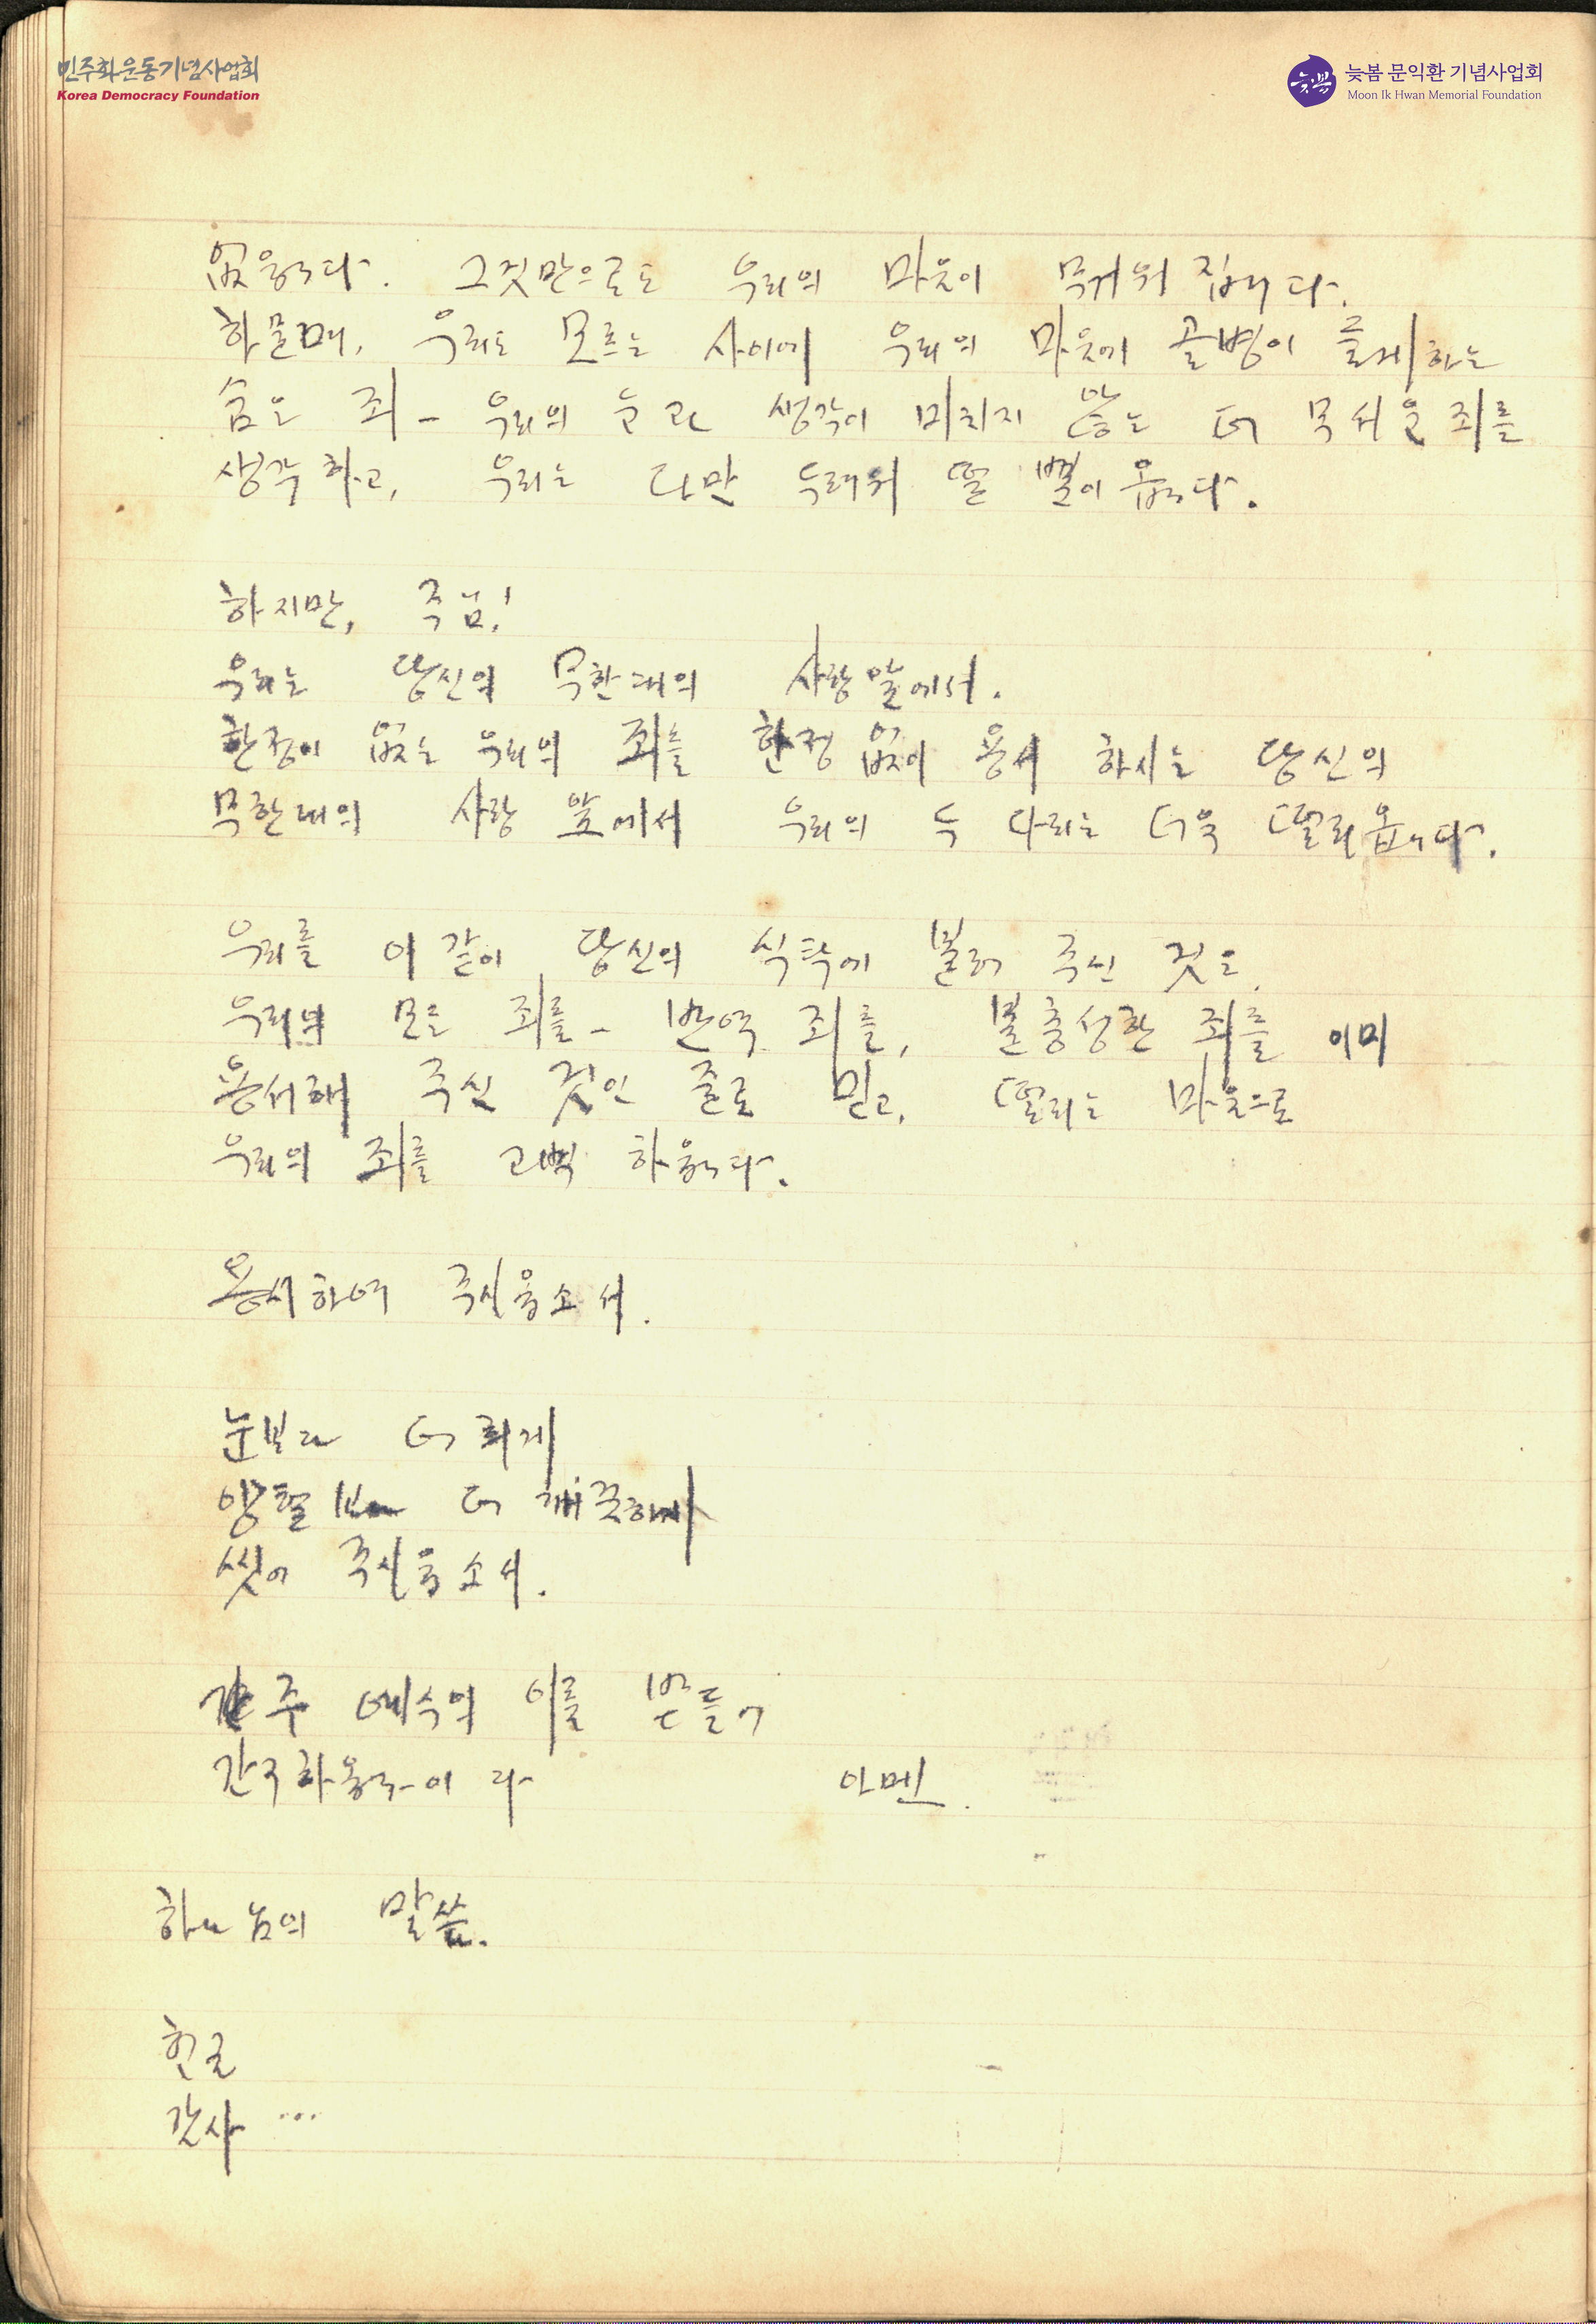 민주화운동기념사업회
Korea Democracy Foundation
늦봄 문익환 기념사업회
Moon Ik Hwan Memorial Foundation
없읍니다. 그것만으로도 우리의 마음이 무거워 집니다.
하물며, 우리도 모르는 사이에 우리의 마음에 골병이 들게 하는
숨은 죄 - 우리의 눈과 생각이 미치지 않는 더 무서운 죄를
생각하고, 우리는 다만 두려워 떨 뿐이옵니다.
하지만, 주님!
우리는 당신의 무한대의 사랑 앞에서.
한정이 없는 우리의 죄를 한정 없이 용서 하시는 당신의
무한대의 사랑 앞에서 우리의 두 다리는 더욱 떨리옵니다.
우리를 이 같이 당신의 식탁에 불러 주신 것은,
우리의 모든 죄를 - 반역 죄를, 불충성한 죄를 이미
용서해 주신 것인 줄로 믿고, 떨리는 마음으로
우리의 죄를 고백 하옵니다.
용서하여 주시옵소서.
눈보다 더 희게
양털보다 더 깨끗하게
씻어 주시옵소서.
주 예수의 이름 받들어
간구하옵나이다 아멘.
하나님의 말씀.
헌금
감사 ...